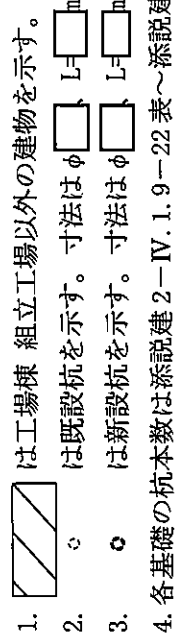 1. は工場棟 組立工場以外の建物を示す。
2. は既設杭を示す。寸法はφ 、L= m
3. は新設杭を示す。寸法はφ 、L= m
4. 各基礎の杭本数は添説建2-Ⅳ.1.9-22表~添説建